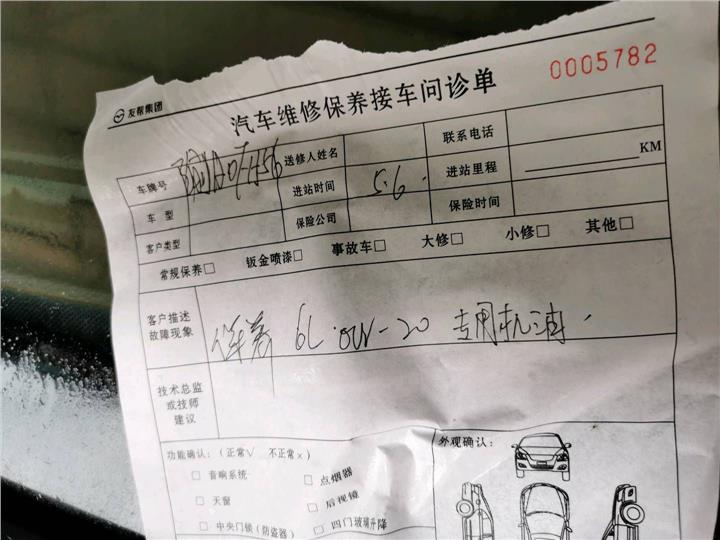 友帮集团
汽车维修保养接车问诊单
0005782
车牌号 送修人姓名 联系电话
车型 进站时间 5.6. 进站里程 KM
客户类型 保险公司 保险时间
常规保养□ 钣金喷漆□ 事故车□ 大修□ 小修□ 其他□
客户描述
故障现象
保养 6L 0W-20 专用机油.
技术总监
或技师
建议
功能确认:(正常√ 不正常×)
外观确认:
□ 音响系统 □ 点烟器
□ 天窗 □ 后视镜
□ 中央门锁(防盗器) □ 四门玻璃升降